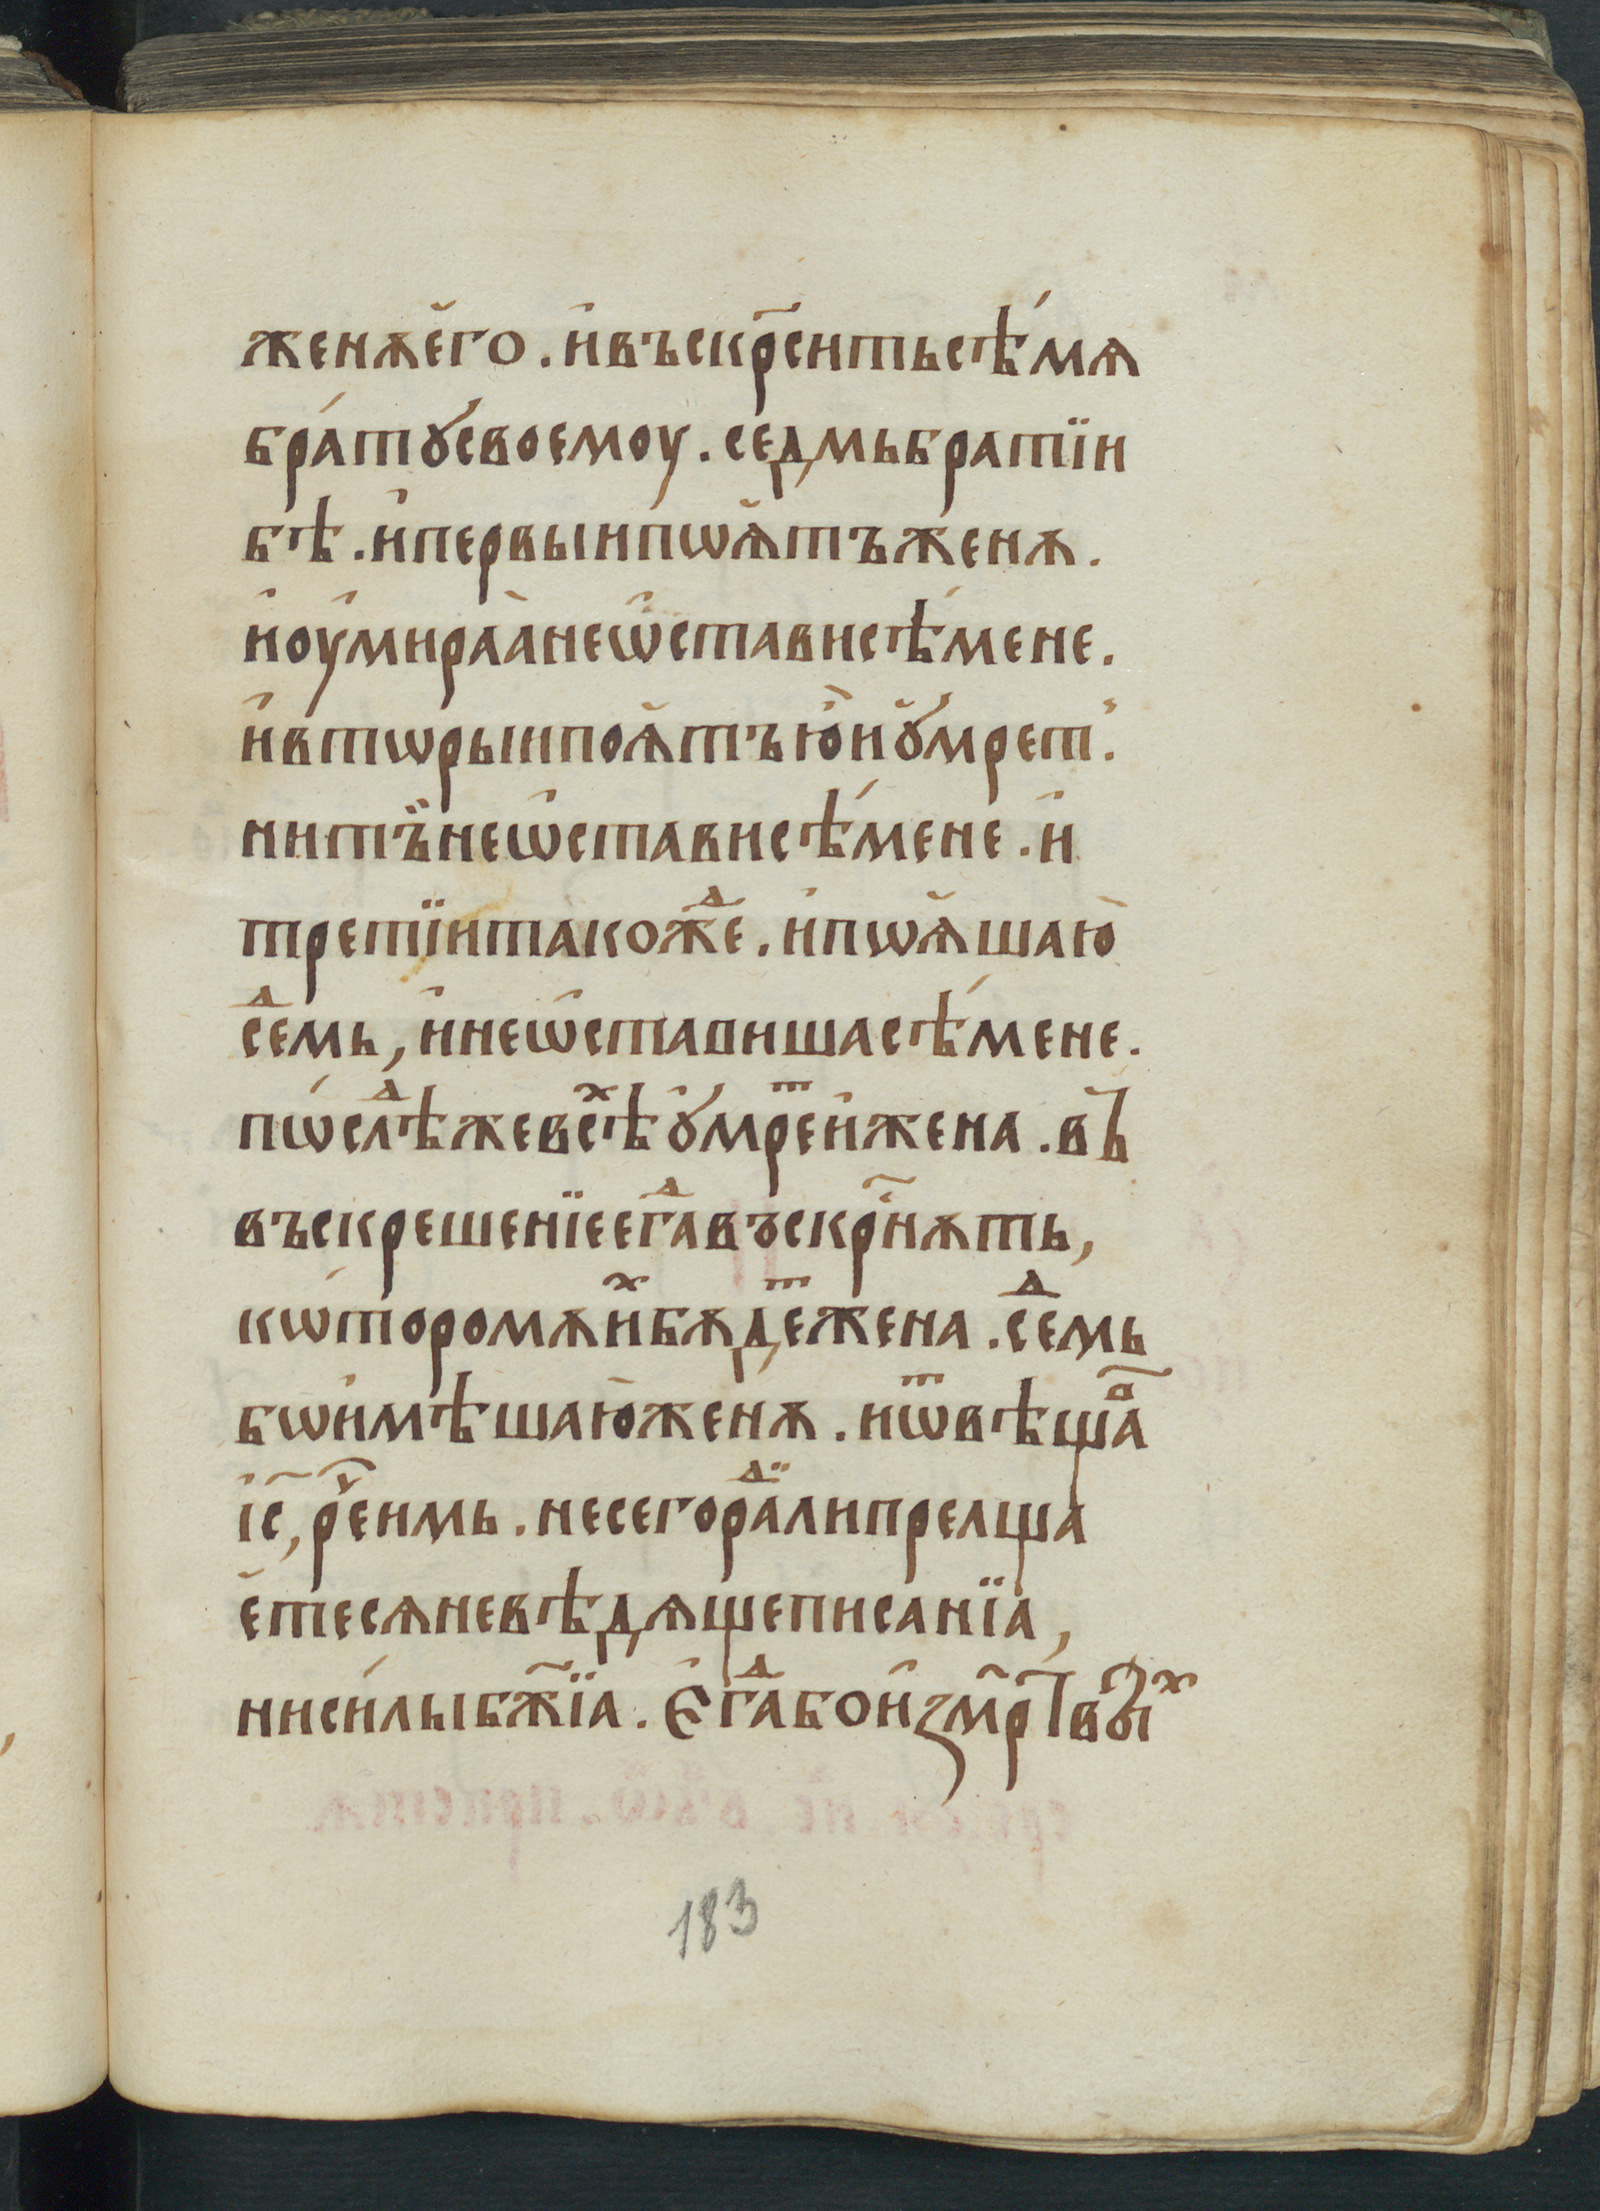 женѫ его. и въскр҃сить сѣ́мѧ
бра́тꙋ своемоу. седмь братїи
бѣ. и первыи пѡѧтъ женѫ.
и оумираа не ѡстави сѣ́мене.
и втѡрыи поѧтъ ю и ꙋмрет.
ни тъи не ѡстави сѣ́мене. и
третїи такоⷤде. и пѡѧша ю
сеⷣмь, и не ѡставиша сѣ́мене.
пѡслѣⷣ же всѣⷯ ꙋмреⷮ и жена. въ
въскрешенїе егⷣа въскр҃нѫть,
кѡторомѫ иⷯ бѫдеⷮ жена. сеⷣмь
бѡ имѣша ю женѫ. и ѿвѣщаⷡ҇
і҃с, реⷱ҇ имь. не сего раⷣи ли прелща
етесѧ не вѣдѧще писанїа,
ни силы бж҃їа. Егⷣа бо из мр҃твыⷯ
183